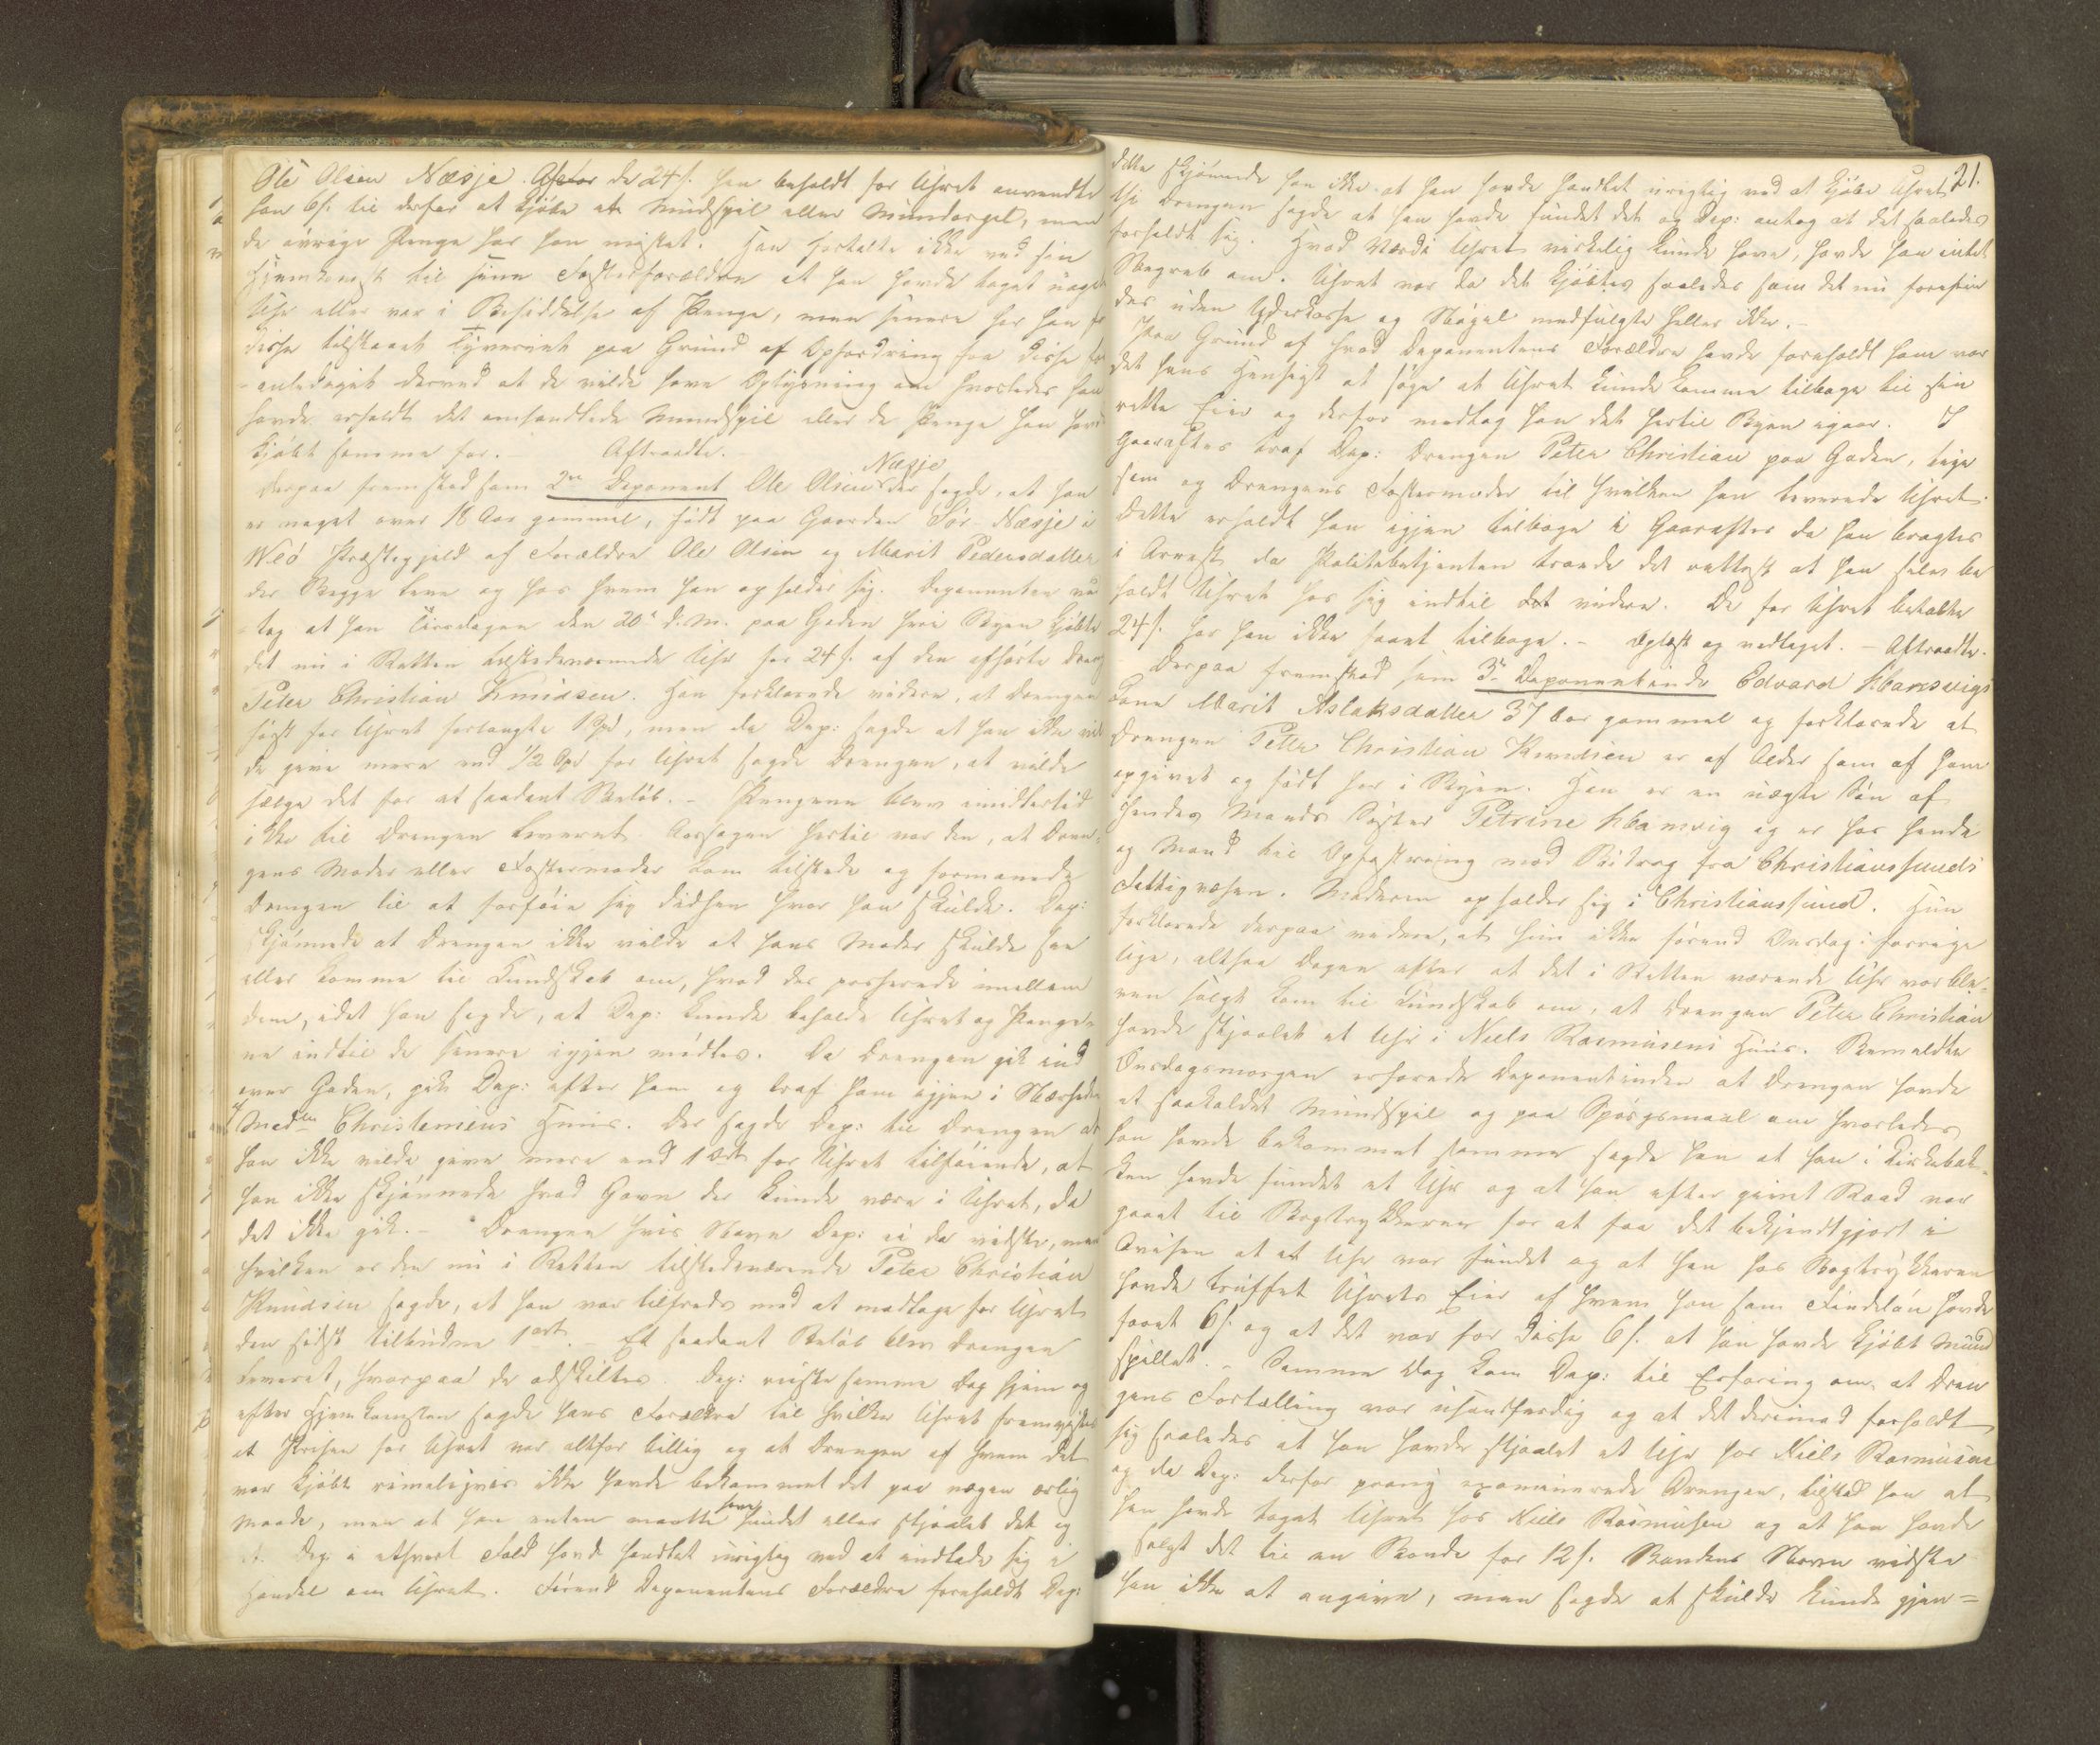 Ole Olsen Næsje. Af de 24 s. han beholdt for Uhret anvendte
han 6 s. til derfor at kjøbe et Mundspil eller Mundorgel, men
de øvrige Penge har han mistet. Han fortalte ikke ved sin
Hjemkomst til sine Fosterforældre at han havde taget noget
Uhr eller var i Besiddelse af Penge, men senere har han for
disse tilstaaet Tyveriet paa Grund af Opfordring fra disse for
anlediget derved at de vilde have Oplysning om hvorledes han
havde erholdt det omhandlede Mundspil eller de Penge han havde
kjøbt samme for. Aftraadte.
Derpaa fremstod som 2n Deponent Ole Olsen Næsje der sagde, at han
er noget over 18 Aar gammel, født paa Gaarden Sør-Næsje i
Weø Præstegjeld af Forældre Ole Olsen og Marit Pedersdatter
der Begge leve og hos hvem han opholder sig. Deponenten ved
tog at han Tirsdagen den 20de d. M. paa Gaden her i Byen kjøbte
det nu i Retten tilstedeværende Uhr for 24 s. af den afhørte Dreng
Peter Christian Knudsen. Han forklarede videre, at Drengen
først for Uhret forlangte 1 Spd, men da Dep: sagde at han ikke vil
de give mere end 1/2 Spd for Uhret sagde Drengen, at vilde
sælge det for et saadant Beløb. – Pengene blev imidlertid
ikke til Drengen leveret. Aarsagen hertil var den, at Dren-
gens Moder eller Fostermoder kom tilstede og formanede
Drengen til at forføie sig didhen hvor han skulde. Dep:
skjønnede at Drengen ikke vilde at hans Moder skulde see
eller komme til Kundskab om, hvad der passerede imellem
dem, idet han sagde, at Dep: kunde beholde Uhret og Penge-
ne indtil de senere igjen mødtes. Da Drengen gik ind
over Gaden, gik Dep: efter ham og traf ham igjen i Nærheden
af Madm Christensens Huus. Der sagde Dep: til Drengen at
han ikke vilde give mere end 1 Ort for Uhret tilføiende, at
han ikke skjønnede hvad Gavn der kunde være i Uhret, da
det ikke gik. – Drengen hvis Navn Dep: ei da vidste, men
hvilken er den nu i Retten tilstedeværende Peter Christian
Knudsen sagde, at han var tilfreds med at modtage for Uhret
den sidst tilbudne 1 ort. – Et saadant Beløb blev Drengen
leveret, hvorpaa de adskiltes. Dep: reiste samme Dag hjem og
efter Hjemkomsten sagde hans Forældre til hvilke Uhret fremvistes
at Prisen for Uhret var altfor billig og at Drengen af hvem det
var kjøbt rimeligviis ikke havde bekommet det paa nogen ærlig
Maade, men at han enten maatte have fundet eller stjaalet det og
at Dep: i ethvert Fald havde handlet urigtig ved at indlade sig i
Handel om Uhret. Førend Deponentens Forældre foreholdt Dep:
21.
dette skjønnede han ikke at han havde handlet urigtig ved at kjøbe Uhret,
thi Drengen sagde at han havde fundet det og Dep: antog at det saaledes
forholdt sig. Hvad Værdi Uhret virkelig kunde have, havde han intet
Begreb om. Uhret var da det kjøbtes saaledes som det nu forefin
des uden Yderkasse og Nøgel medfulgte heller ikke. –
Paa Grund af hvad Deponentens Forældre havde foreholdt ham var
det hans Hensigt at søge at Uhret kunde komme tilbage til sin
rette Eier og derfor medtog han det hertil Byen igaar. I
Gaaraftes traf Dep: Drengen Peter Christian paa Gaden, lige
som og Drengens Fostermoder til hvilken han leverede Uhret.
Dette erholdt han igjen tilbage i Gaaraftes da han bragtes
i Arrest da Politibetjenten troede det rettest at han selv be
holdt Uhret hos sig indtil det videre. De for Uhret betalte
24 s. har han ikke faaet tilbage. – Oplæst og vedtaget. – Aftraadte.
Derpaa fremstod som 3de Deponentinde Edvard Hbamsvigs
Kone Marit Aslaksdatter 37 Aar gammel og forklarede at
Drengen Peter Christian Knudsen er af Alder som af ham
opgivet og født her i Byen. Han er en uægte Søn af
hendes Mands Søster Petrine Hbamvig og er hos hende
og Mand til Opfostring mod Bidrag fra Christianssunds
Fattigvæsen. Moderen opholder sig i Christianssund. Hun
forklarede derpaa videre, at hun ikke førend Onsdag i forrige
Uge, altsaa Dagen efter at det i Retten værende Uhr var ble-
ven solgt kom til Kundskab om, at Drengen Peter Christian
havde stjaalet et Uhr i Niels Rasmusens Huus. Bemeldte
Onsdagsmorgen erfarede Deponentinden at Drengen havde
et saakaldet Mundspil og paa Spørgsmaal om hvorledes
han havde bekommet samme sagde han at han i Kirkebak-
ken havde fundet et Uhr og at han efter givet Raad var
gaaet til Bogtrykkeren for at faae det bekjendtgjort i
Avisen at et Uhr var fundet og at han hos Bogtrykkeren
havde truffet Uhrets Eier af hvem han som Findeløn havde
faaet 6 s. og at det var for disse 6 s. at han havde kjøbt Mund
spillet. – Samme Dag kom Dep: til Erfaring om at Dren
gens Fortælling var usandfærdig og at det derimod forholdt
sig saaledes at han havde stjaalet et Uhr hos Niels Rasmusen
og da Dep: derfor examinerede Drengen, tilstod han at
han havde taget Uhret hos Niels Rasmusen og at han havde
solgt det til en Bonde for 12 s. Bondens Navn vidste
han ikke at angive, men sagde at skulde kunde gjen=